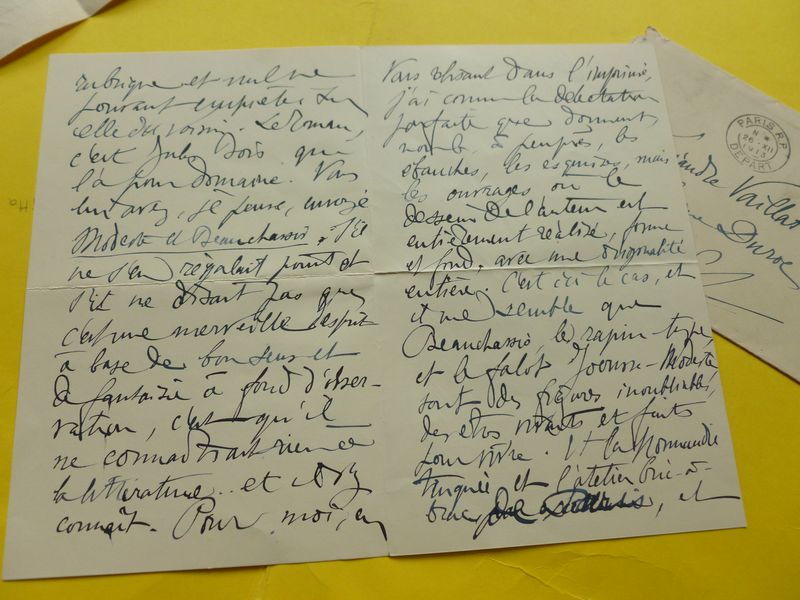 rubrique et nul ne
pouvant empiéter sur
celle du voisin. Le Roman,
c'est Jules Bois qui
l'a pour domaine. Vous
lui avez, je pense, envoyé
Modeste et Beauchassis. S'il
ne s'en régalait point et
s'il ne disait pas que
c'est une merveille d'esprit
à base de bon sens et
de fantaisie à fond d'obser-
vation, c'est qu'il
ne connaîtrait rien à
la littérature.. et il s'y
connaît. Pour moi, en
Vous relisant dans l'imprimé,
j'ai connu la délectation
parfaite que donnent
non pas, à peu près, les
ébauches, les esquisses, mais
les ouvrages où le
dessein de l'auteur est
entièrement réalisé, forme
et fond, avec une originalité
entière. C'est ici le cas, et
il me semble que
Beauchassis, le rapin-type,
et le falot Modeste
sont des figures inoubliables,
des êtres vivants et faits
pour vivre. Et la Normandie
et l'atelier bric-à-
brac, et
PARIS R.P.
26 XII
1913
DÉPART
Vaillat
Duroc